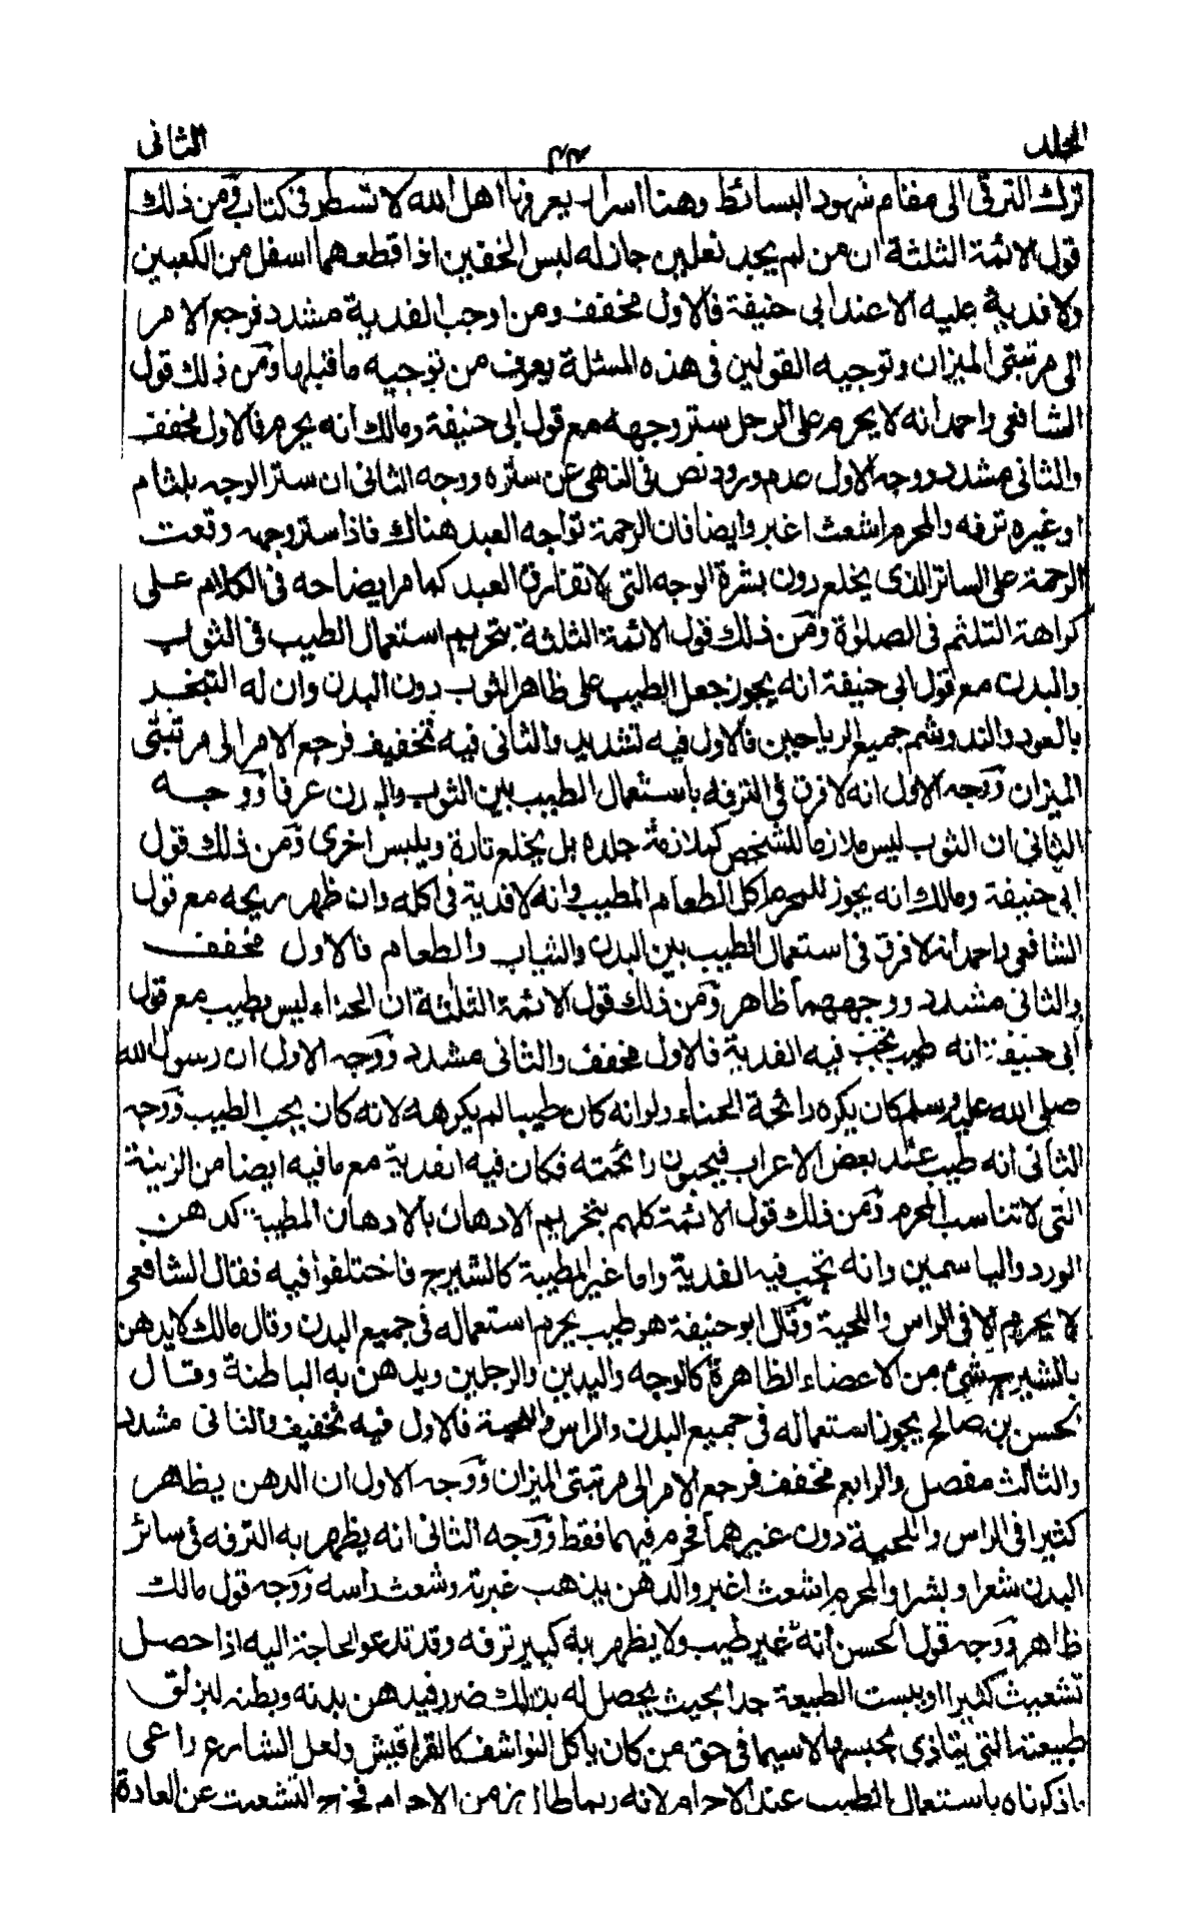 المجلد
٤٣
الثانى
ترك الترقى الى مقام شهود البسائط وهنا اسرار يعرفها اهل الله لا تسطر فى كتاب ومن ذلك
قول الائمة الثلثة ان من لم يجد نعلين جاز له لبس الخفين اذا قطعهما اسفل من الكعبين
ولا فدية عليه الا عند ابى حنيفة فالاول مخفف ومن اوجب الفدية مشدد فرجع الامر
الى مرتبتى الميزان وتوجيه القولين فى هذه المسئلة يعرف من توجيه ما قبلها ومن ذلك قول
الشافعى واحمد انه لا يحرم على الرجل ستر وجهه مع قول ابى حنيفة ومالك انه يحرم فالاول مخفف
والثانى مشدد ووجه الاول عدم ورود نص فى النهى عن ستره ووجه الثانى ان ستر الوجه بلثام
او غيره ترفه والمحرم اشعث اغبر وايضا فان الرحمة تواجه العبد هناك فاذا ستر وجهه وقعت
الرحمة على الساتر الذى يخلع دون بشرة الوجه التى لا تفارق العبد كما مر ايضاحه فى الكلام على
كراهة التلثم فى الصلوة ومن ذلك قول الائمة الثلثة بتحريم استعمال الطيب فى الثوب
والبدن مع قول ابى حنيفة انه يجوز جعل الطيب على ظاهر الثوب دون البدن وان له التبخر
بالعود والند وشم جميع الرياحين فالاول فيه تشديد والثانى فيه تخفيف فرجع الامر الى مرتبتى
الميزان ووجه الاول انه لا فرق فى الترفه باستعمال الطيب بين الثوب والبدن عرفا ووجه
الثانى ان الثوب ليس ملازما للشخص كملازمة جلده بل يخلع تارة ويلبس اخرى ومن ذلك قول
ابى حنيفة ومالك انه يجوز للمحرم اكل الطعام المطيب وانه لا فدية فى اكله وان ظهر ريحه مع قول
الشافعى واحمد انه لا فرق فى استعمال الطيب بين البدن والثياب والطعام فالاول مخفف
والثانى مشدد ووجههما ظاهر ومن ذلك قول الائمة الثلثة ان الحناء ليس بطيب مع قول
ابى حنيفة انه طيب تجب فيه الفدية فالاول مخفف والثانى مشدد ووجه الاول ان رسول الله
صلى الله عليه وسلم كان يكره رائحة الحناء ولو انه كان طيبا لم يكرهه لانه كان يحب الطيب ووجه
الثانى انه طيب عند بعض الاعراب فيحبون رائحته فكان فيه الفدية مع ما فيه ايضا من الزينة
التى لا تناسب المحرم ومن ذلك قول الائمة كلهم بتحريم الادهان بالادهان المطيبة كدهن
الورد والياسمين وانه تجب فيه الفدية واما غير المطيبة كالشيرج فاختلفوا فيه فقال الشافعى
لا يحرم الا فى الراس واللحية وقال ابو حنيفة هو طيب يحرم استعماله فى جميع البدن وقال مالك لا يدهن
بالشيرج شئ من الاعضاء الظاهرة كالوجه واليدين والرجلين ويدهن به الباطنة وقال
الحسن بن صالح يجوز استعماله فى جميع البدن والراس واللحية فالاول فيه تخفيف والثانى مشدد
والثالث مفصل والرابع مخفف فرجع الامر الى مرتبتى الميزان ووجه الاول ان الدهن يظاهر
كثيرا فى الراس واللحية دون غيرهما فحرم فيهما فقط ووجه الثانى انه يظهر به الترفه فى سائر
البدن شعرا وبشرا والمحرم اشعث اغبر والدهن يذهب غبرته وشعث راسه ووجه قول مالك
ظاهر ووجه قول الحسن انه غير طيب ولا يظهر به كبير ترفه وقد تدعو الحاجة اليه اذا حصل
تشعيث كثير او يبست الطبيعة جدا بحيث يحصل له بذلك ضرر فيدهن بدنه وبطنه ليزلق
طبيعته التى يتاذى بحبسها لاسيما فى حق من كان ياكل النواشف كالقراقيش ولعل الشارع راعى
ما ذكرناه باستعمال الطيب عند الاحرام لانه ربما طال زمن الاحرام فخرج التشعيث عن العادة